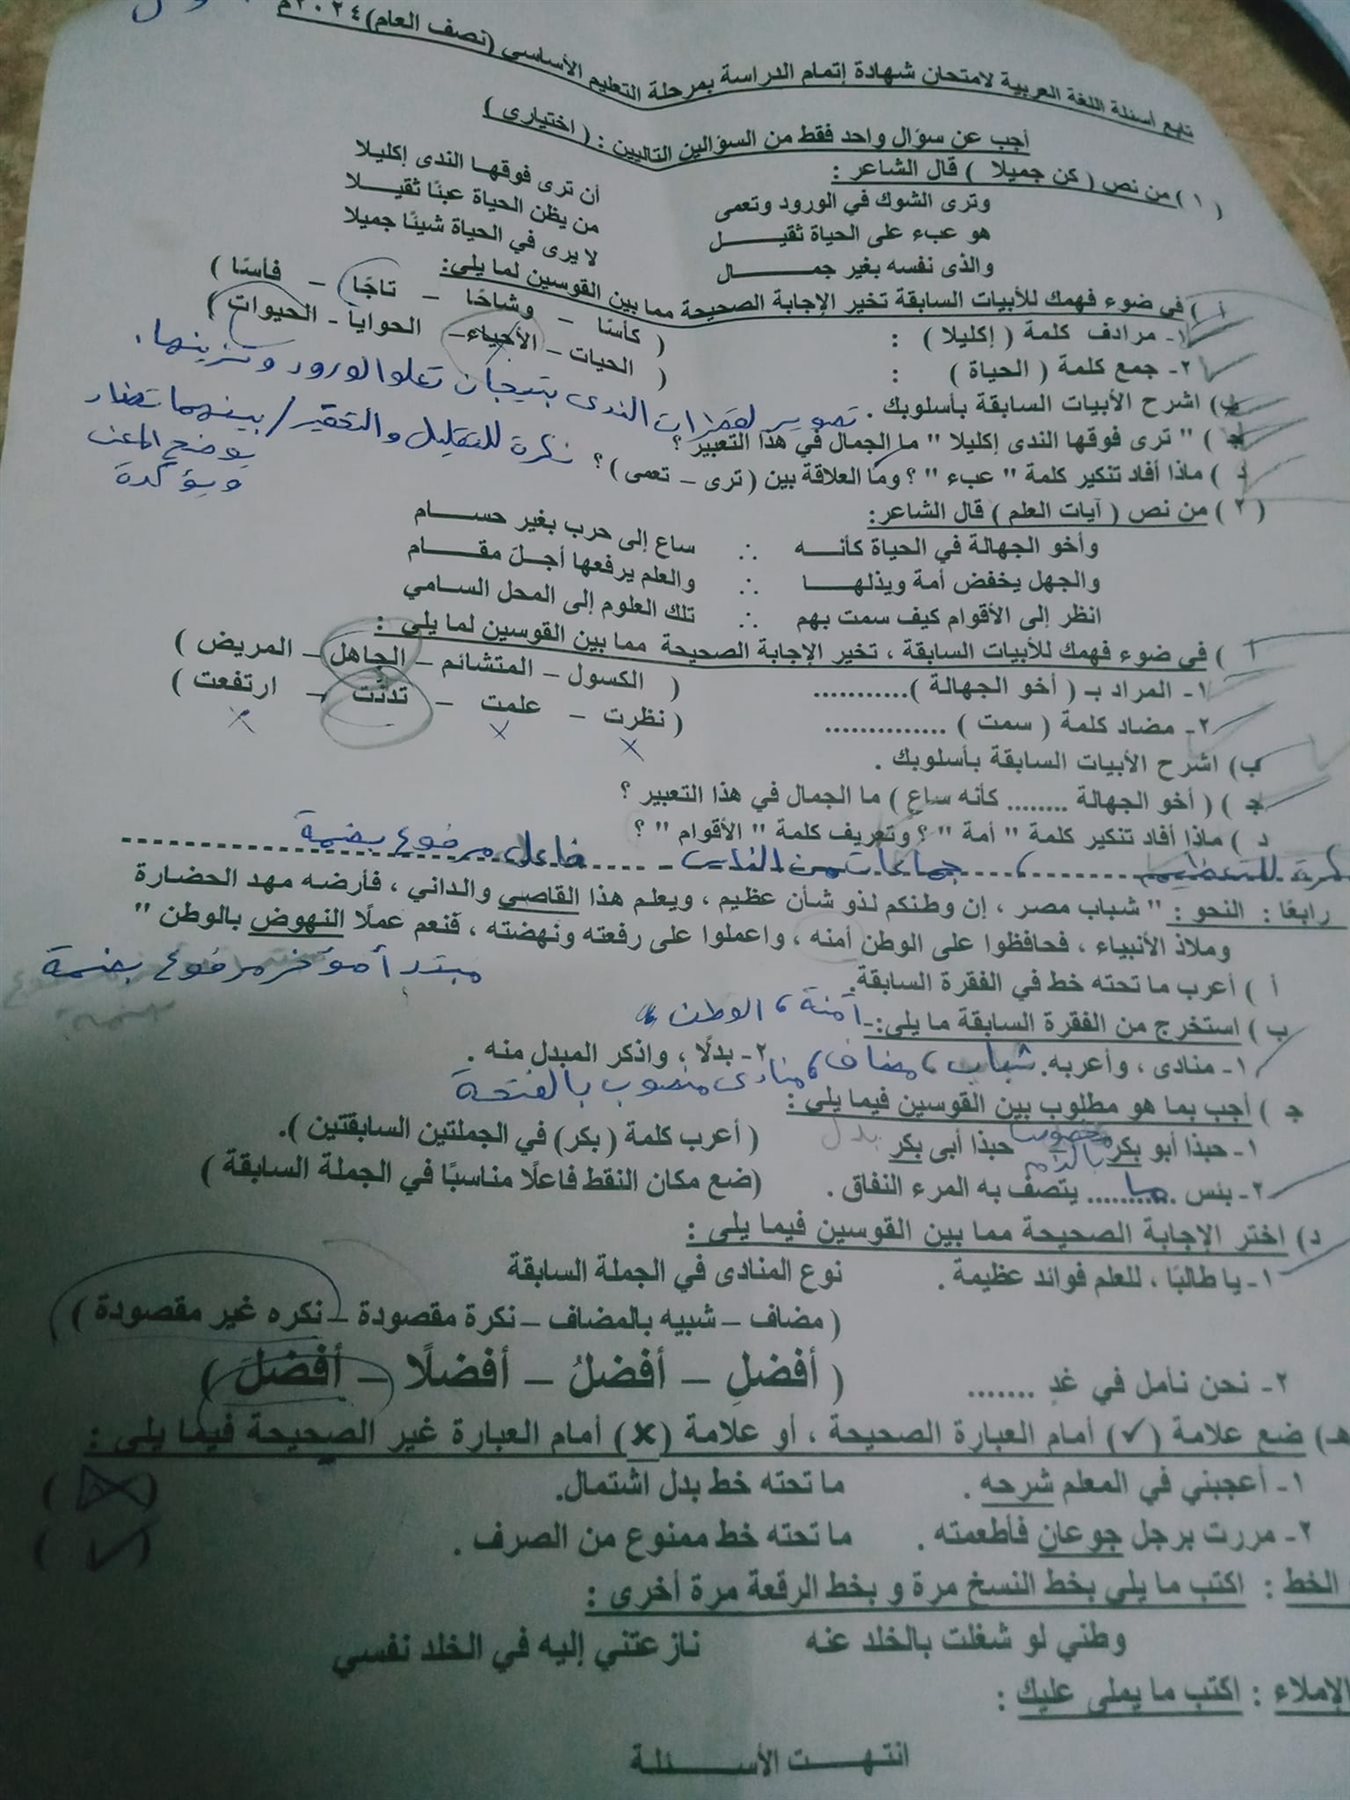 تابع أسئلة اللغة العربية لامتحان شهادة إتمام الدراسة بمرحلة التعليم الأساسي (نصف العام) ٢٠٢٤م
أجب عن سؤال واحد فقط من السؤالين التاليين : ( اختياري )
( ١ ) من نص ( كن جميلا ) قال الشاعر :
وترى الشوك في الورود وتعمى أن ترى فوقها الندى إكليلا
هو عبء على الحياة ثقيل من يظن الحياة عبئًا ثقيلا
والذى نفسه بغير جمال لا يرى في الحياة شيئًا جميلا
أ ) في ضوء فهمك للأبيات السابقة تخير الإجابة الصحيحة مما بين القوسين لما يلي:
١- مرادف كلمة ( إكليلا ) : ( كأسًا – وشاحًا – تاجًا – فأسًا )
٢- جمع كلمة ( الحياة ) : ( الحيات – الأحياء – الحوايا – الحيوات )
ب) اشرح الأبيات السابقة بأسلوبك . تصوير لقطرات الندى بتيجان تعلو الورود وتزينها .
جـ ) " ترى فوقها الندى إكليلا " ما الجمال في هذا التعبير ؟
نكرة للتقليل والتحقير / بينهما تضاد
د ) ماذا أفاد تنكير كلمة " عبء " ؟ وما العلاقة بين ( ترى – تعمى ) ؟
يوضح المعنى
ويؤكدة
( ٢ ) من نص ( آيات العلم ) قال الشاعر:
وأخو الجهالة في الحياة كأنه ∴ ساع إلى حرب بغير حسام
والجهل يخفض أمة ويذلها ∴ والعلم يرفعها أجلَ مقام
انظر إلى الأقوام كيف سمت بهم ∴ تلك العلوم إلى المحل السامي
أ ) في ضوء فهمك للأبيات السابقة ، تخير الإجابة الصحيحة مما بين القوسين لما يلي :
١- المراد بـ ( أخو الجهالة )........... ( الكسول – المتشائم – الجاهل – المريض )
٢- مضاد كلمة ( سمت ) .............. ( نظرت – علمت – تدنَّت – ارتفعت )
ب) اشرح الأبيات السابقة بأسلوبك .
جـ ) ( أخو الجهالة ........ كأنه ساعٍ ) ما الجمال في هذا التعبير ؟
د ) ماذا أفاد تنكير كلمة " أمة " ؟ وتعريف كلمة " الأقوام " ؟
نكرة للتعظيم ، جماعات من الناس فاعل مرفوع بضمة
رابعًا : النحو : " شباب مصر ، إن وطنكم لذو شأن عظيم ، ويعلم هذا القاصي والداني ، فأرضه مهد الحضارة
وملاذ الأنبياء ، فحافظوا على الوطن أمنه ، واعملوا على رفعته ونهضته ، فنعم عملًا النهوض بالوطن "
مبتدأ مؤخر مرفوع بضمة
أ ) أعرب ما تحته خط في الفقرة السابقة.
ب ) استخرج من الفقرة السابقة ما يلي:- أمنة ، الوطن
١- منادى ، وأعربه. ٢- بدلًا ، واذكر المبدل منه .
شباب ، مضاف ، منادى منصوب بالفتحة
جـ ) أجب بما هو مطلوب بين القوسين فيما يلي :
١- حبذا أبو بكر حبذا أبى بكر ( أعرب كلمة ( بكر) في الجملتين السابقتين ).
بدل
٢- بئس ..ما.. يتصف به المرء النفاق . (ضع مكان النقط فاعلًا مناسبًا في الجملة السابقة )
د) اختر الإجابة الصحيحة مما بين القوسين فيما يلي :
١- يا طالبًا ، للعلم فوائد عظيمة . نوع المنادى في الجملة السابقة
( مضاف – شبيه بالمضاف – نكرة مقصودة – نكره غير مقصودة )
٢- نحن نأمل في غدٍ ....... ( أفضلِ – أفضلُ – أفضلًا – أفضلَ )
هـ) ضع علامة (✓) أمام العبارة الصحيحة ، أو علامة (✗) أمام العبارة غير الصحيحة فيما يلي :
١- أعجبني في المعلم شرحه . ما تحته خط بدل اشتمال. ( )
٢- مررت برجل جوعان فأطعمته . ما تحته خط ممنوع من الصرف . ( ✓ )
الخط : اكتب ما يلي بخط النسخ مرة و بخط الرقعة مرة أخرى :
وطني لو شغلت بالخلد عنه نازعتني إليه في الخلد نفسي
الإملاء : اكتب ما يملى عليك :
انتهت الأسئلة